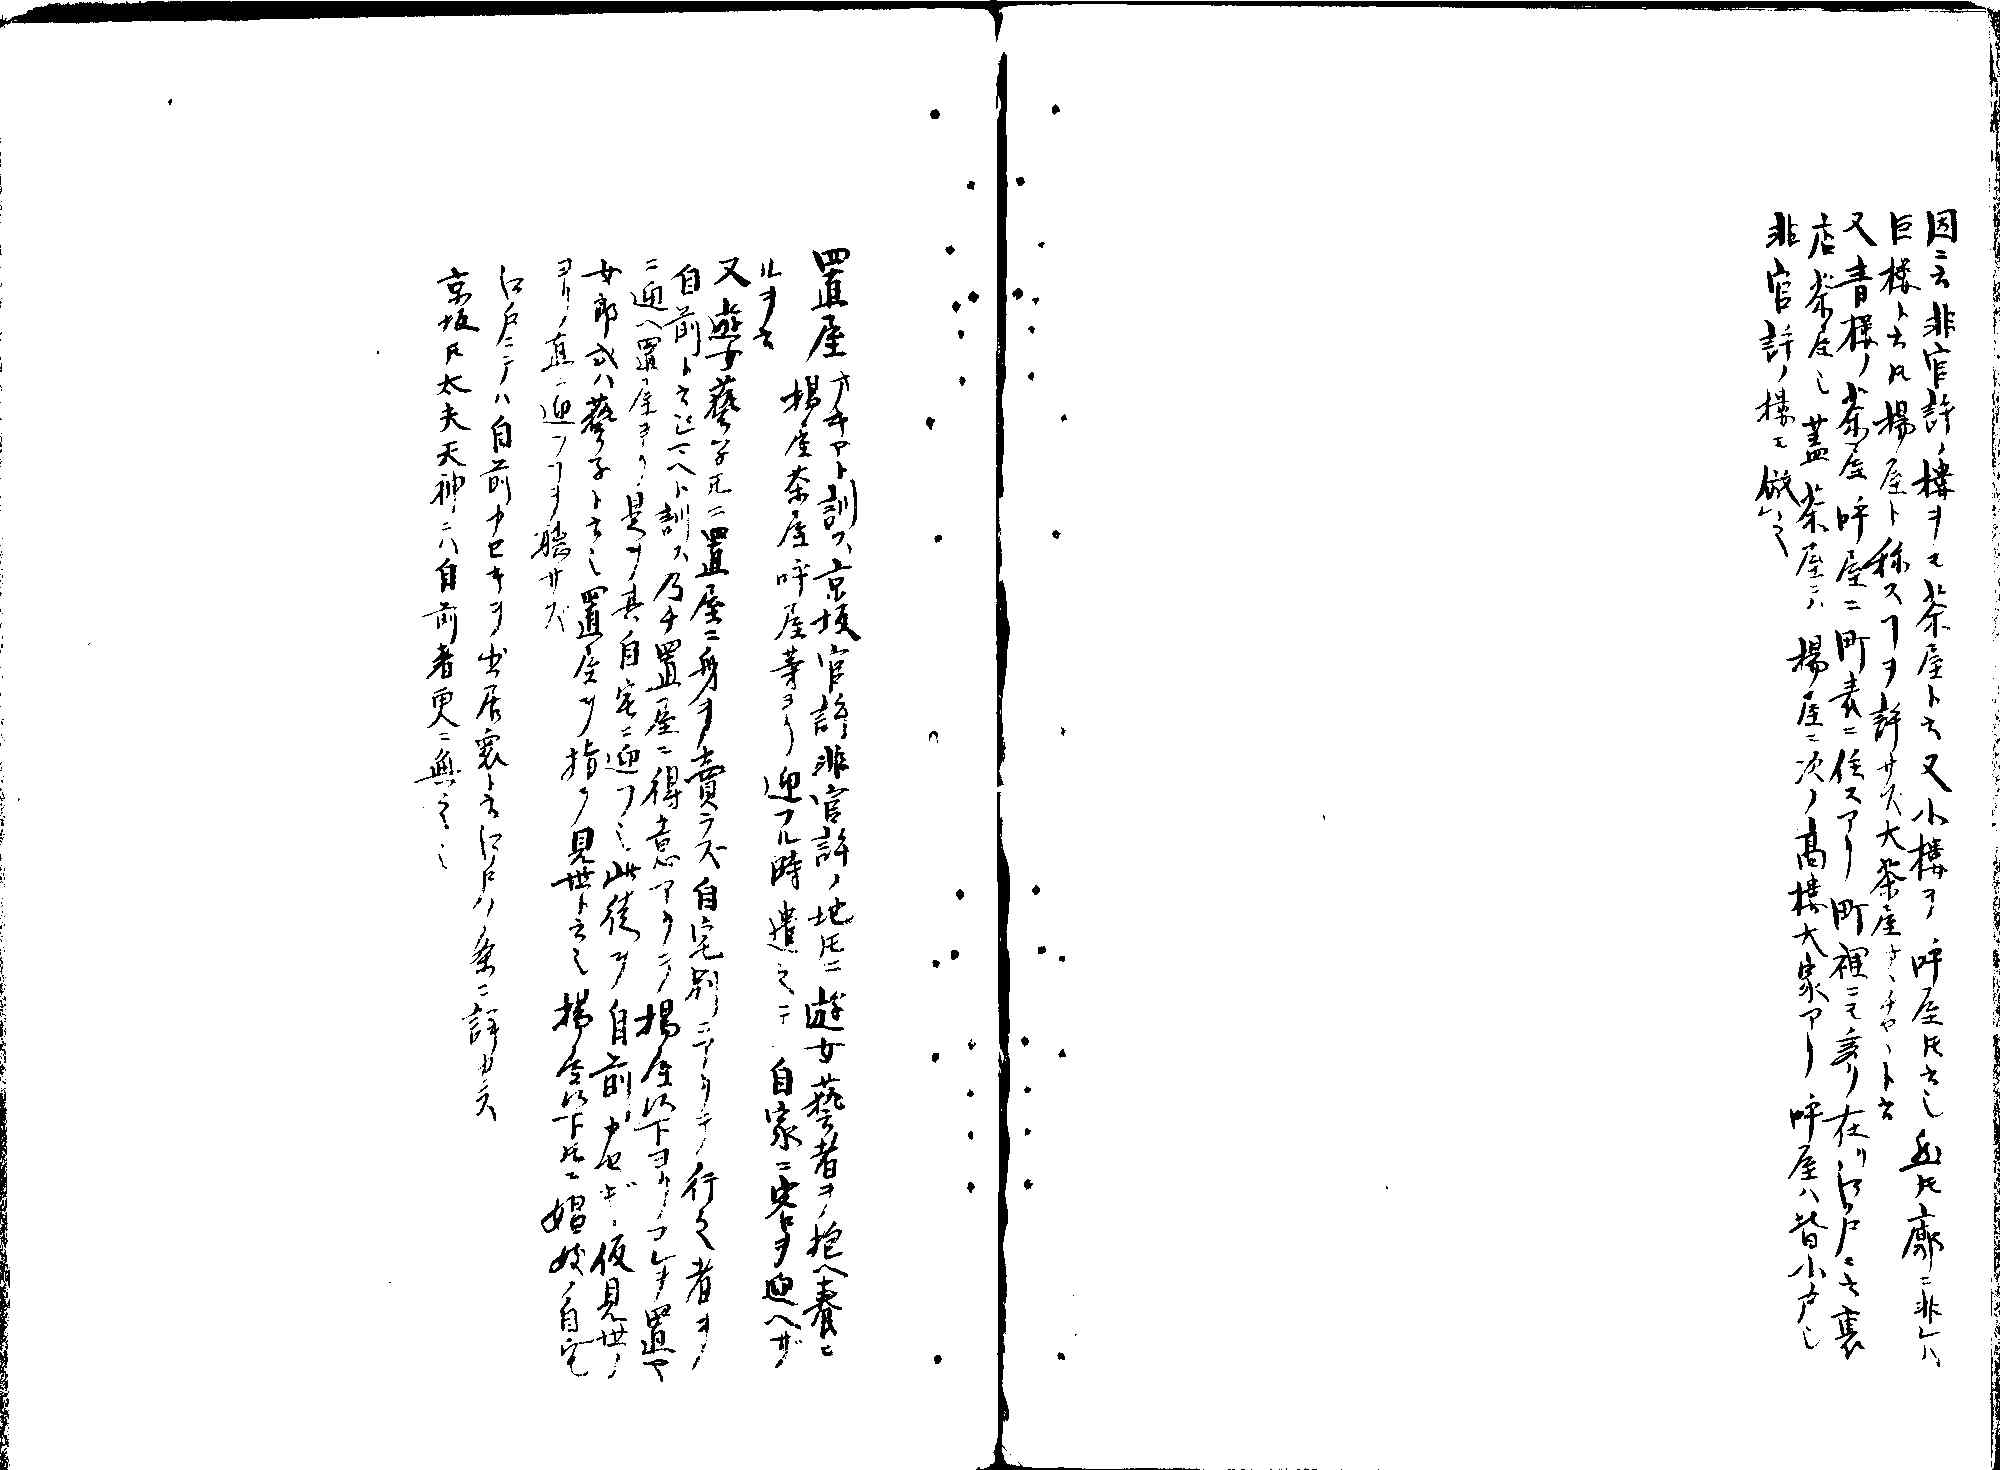 因ニ云非官許ノ樓ヲモ茶屋ト云又小樓ヲ呼屋トモ云也然トモ廓ニ非レハ
巨樓ト云トモ揚屋ト称スヿヲ許サズ大茶屋オヽチヤヽト云
又青樓ノ茶屋呼屋ニ町表ニ住スアリ町裡ニモ在リ江戸ニ云裏
店茶屋也蓋茶屋ニハ揚屋ニ次ノ高樓大家アリ呼屋ハ皆小戸也
非官許ノ樓モ倣之
置屋オキヤト訓ス京坂官許非官許ノ地トモニ遊女藝者ヲ抱ヘ養ニ
揚屋茶屋呼屋等ヨリ迎フル時遣之テ自家ニ客ヲ迎ヘザ
ルヲ云
又遊女藝子元ニ置屋ニ身ヲ賣ラズ自宅別ニアリテ行之者ヲ
自前ト云ジマヘト訓ス乃チ置屋ニ得意アリテ揚屋以下ヨリコレヲ置ヤ
ニ迎ヘ置屋ヨリ是ヲ其自宅ニ迎フ也此徒ヲ自前カセギ仮見世ノ
女郎或ハ藝子ト云也置屋ヲ指テ見世ト云也揚屋以下トモニ娼妓ノ自宅
ヨリ直ニ迎フヿヲ聴サズ
江戸ニテハ自前カセキヲ出居衆ト云江戸ノ条ニ詳カニス
京坂トモ太夫天神ニハ自前者更ニ無之也